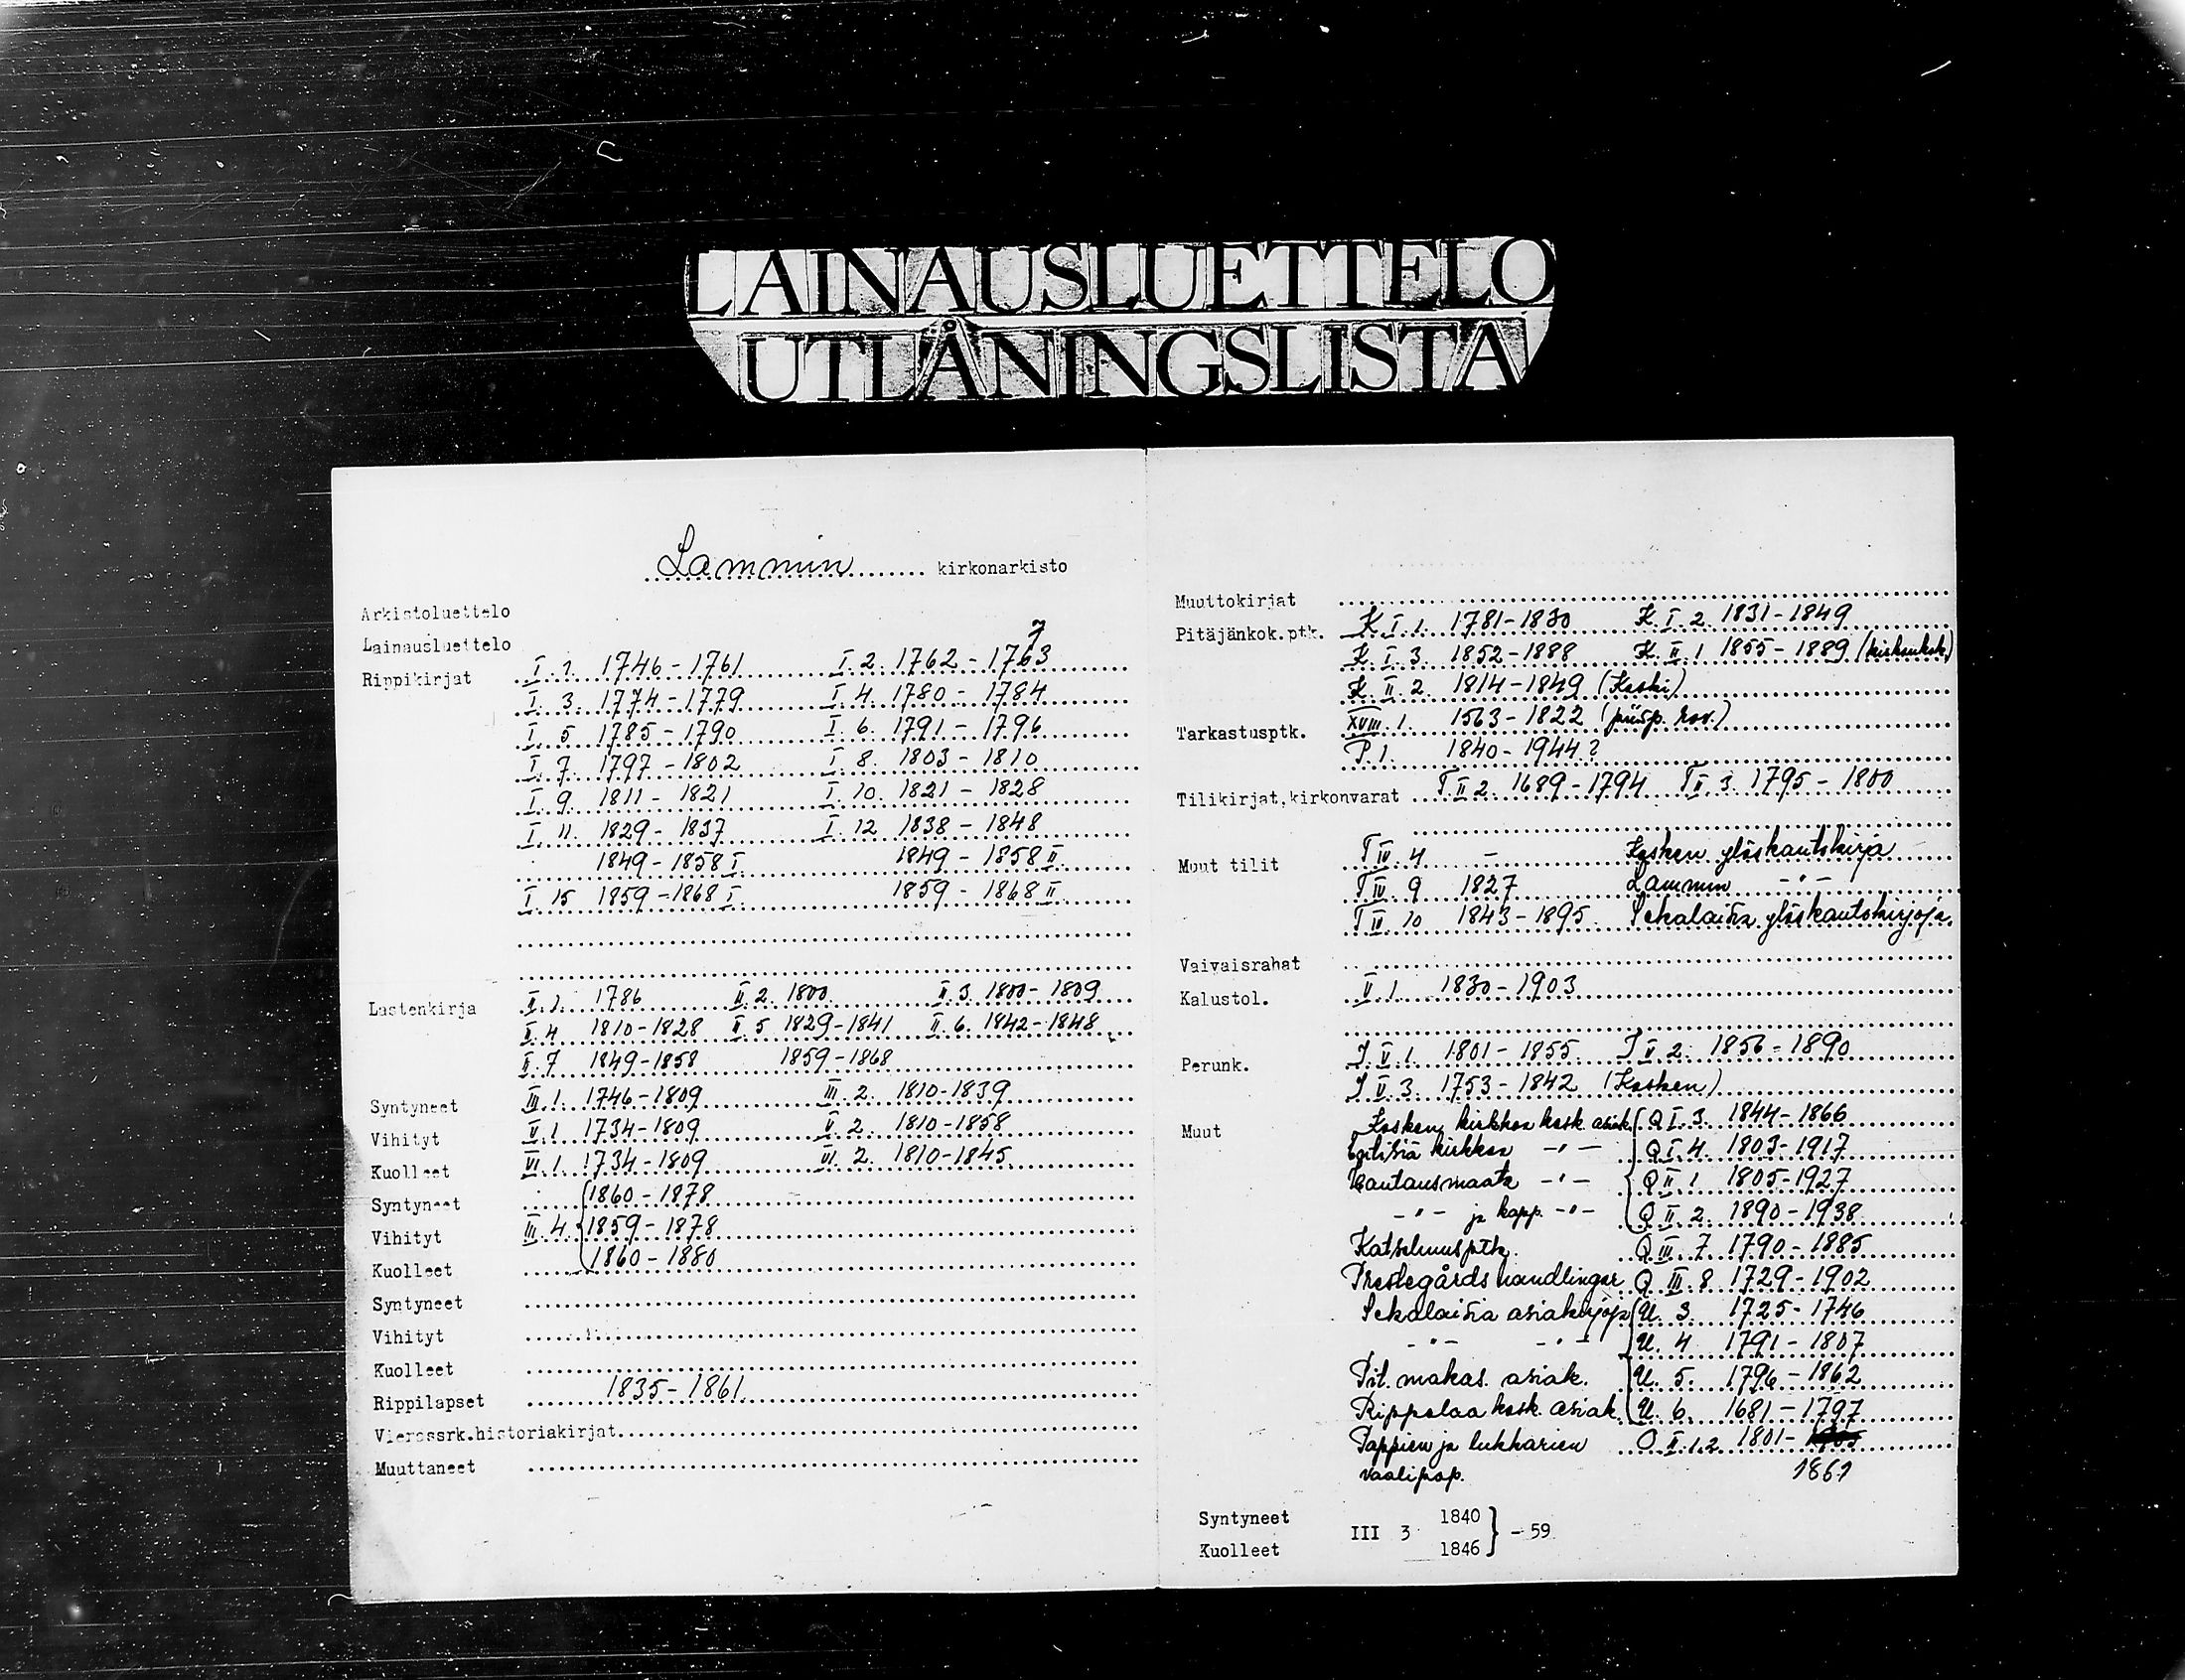 LAINAUSLUETTELO
UTLÅNINGSLISTA
Lammin kirkonarkisto
Arkistoluettelo
Lainausluettelo
7
Rippikirjat I. 1. 1746-1761 I. 2. 1762-1763
I. 3. 1774-1779 I. 4. 1780-1784
I. 5 1785-1790 I. 6. 1791-1796
I. 7. 1797-1802 I. 8. 1803-1810
I. 9. 1811-1821 I. 10. 1821-1828
I. 11. 1829-1837 I. 12 1838-1848
1849-1858 I. 1849-1858 II.
I. 15 1859-1868 I. 1859-1868 II.
Lastenkirja II. 1. 1786 II. 2. 1800 II. 3. 1800-1809
II. 4 1810-1828 II. 5 1829-1841 II. 6. 1842-1848
II. 7 1849-1858 1859-1868
Syntyneet III. 1. 1746-1809 III. 2. 1810-1839
Vihityt V. 1 1734-1809 V. 2. 1810-1858
Kuolleet VI. 1. 1734-1809 VI. 2. 1810-1845
Syntyneet 1860-1878
Vihityt III. 4. 1859-1878
Kuolleet 1860-1880
Syntyneet
Vihityt
Kuolleet
Rippilapset 1835-1861
Vierassrk.historiakirjat
Muuttaneet
Muuttokirjat
Pitäjänkok.ptk. K. I. 1. 1781-1830 K. I. 2. 1831-1849
K. I. 3. 1852-1888 K. II. 1 1855-1889 (kirkonkok.)
K. II. 2. 1814-1849 (Koski)
Tarkastusptk. XVIII. 1. 1563-1822 (piisp. rov.)
P. 1. 1840-1944?
Tilikirjat,kirkonvarat T II 2. 1689-1794 T II. 3. 1795-1800
Muut tilit T IV. 4 - Kosken ylöskantokirja
T IV. 9 1827 Lammin -"-
T IV 10 1843-1895 Sekalaisia ylöskantokirjoja.
Vaivaisrahat
Kalustol. V. 1 1830-1903
Perunk. J. V. 1. 1801-1855 J V 2. 1856-1890
J. V. 3. 1753-1842 (Kosken)
Muut Kosken kirkkoa kosk. asiak. Q I. 3. 1844-1866
Entisiä kirkkoa -"- Q I. 4. 1803-1917
Hautausmaata -"- Q II. 1 1805-1927
-"- ja kapp. -"- Q II. 2. 1890-1938
Katselmusptk. Q III. 7. 1790-1885
Prestegårds handlingar Q III. 8 1729-1902
Sekalaisia asiakirjoja U. 3 1725-1746
-"- -"- U. 4 1791-1807
Pit. makas. asiak. U. 5. 1796-1862
Rippolaa kosk. asiak. U. 6. 1681-1797
Pappien ja lukkarien O. II. 1. 2. 1801-
vaalipap. 1861
Syntyneet 1840
III 3 } - 59
Kuolleet 1846